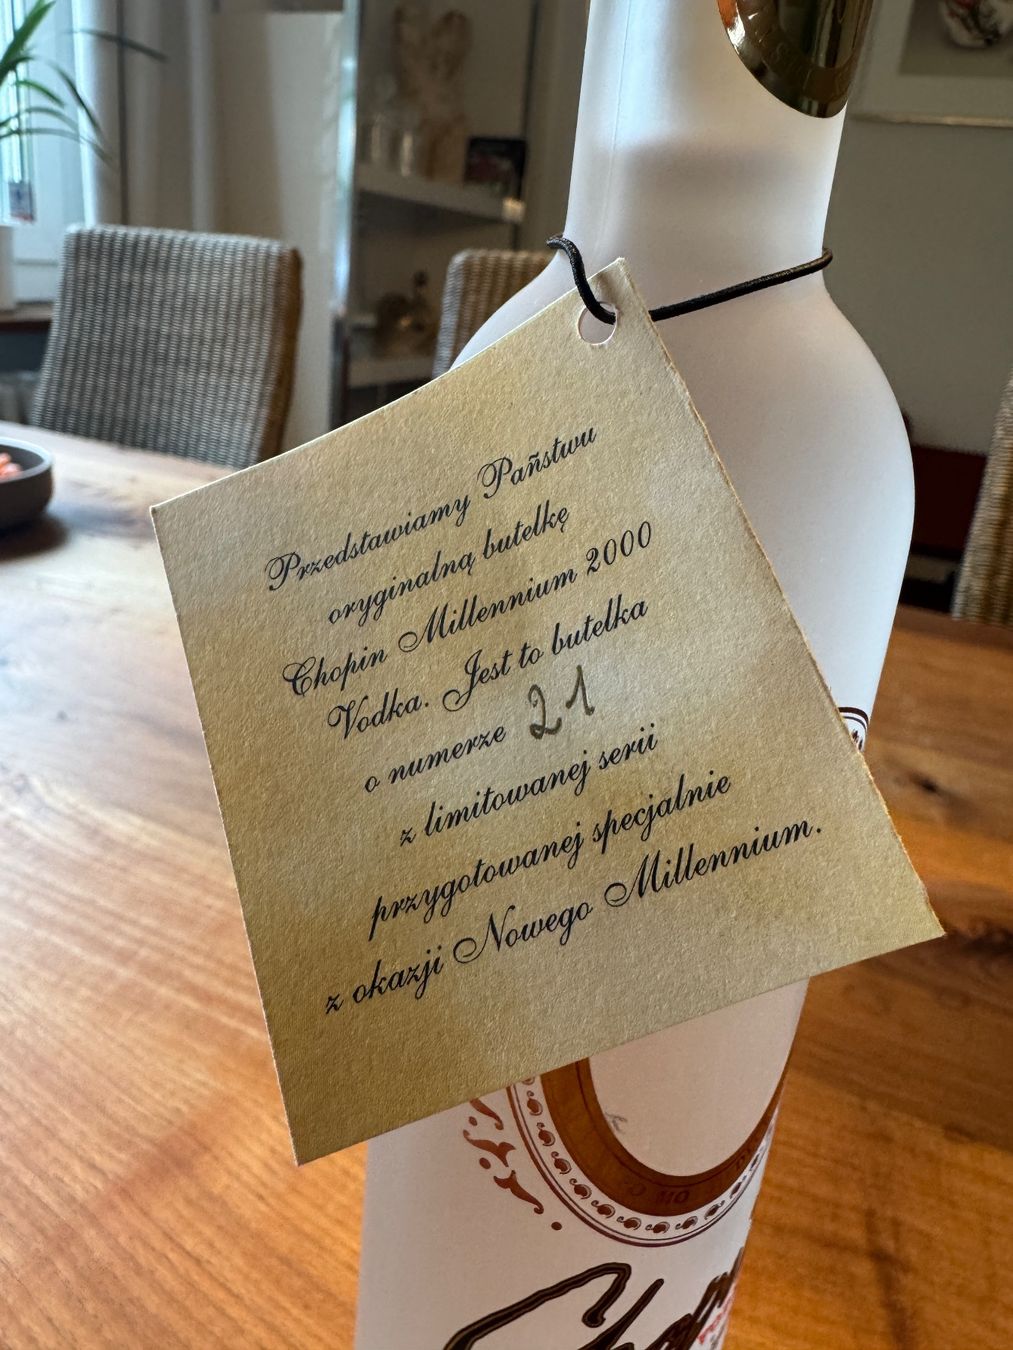 Przedstawiamy Pañstwu
oryginalną butelkę
Chopin Millennium 2000
Vodka. Jest to butelka
o numerze 21
z limitowanej serii
przygotowanej specjalnie
z okazji Nowego Millennium.